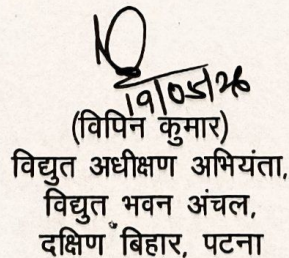 19/05/26
(विपिन कुमार)
विद्युत अधीक्षण अभियंता,
विद्युत भवन अंचल,
दक्षिण बिहार, पटना